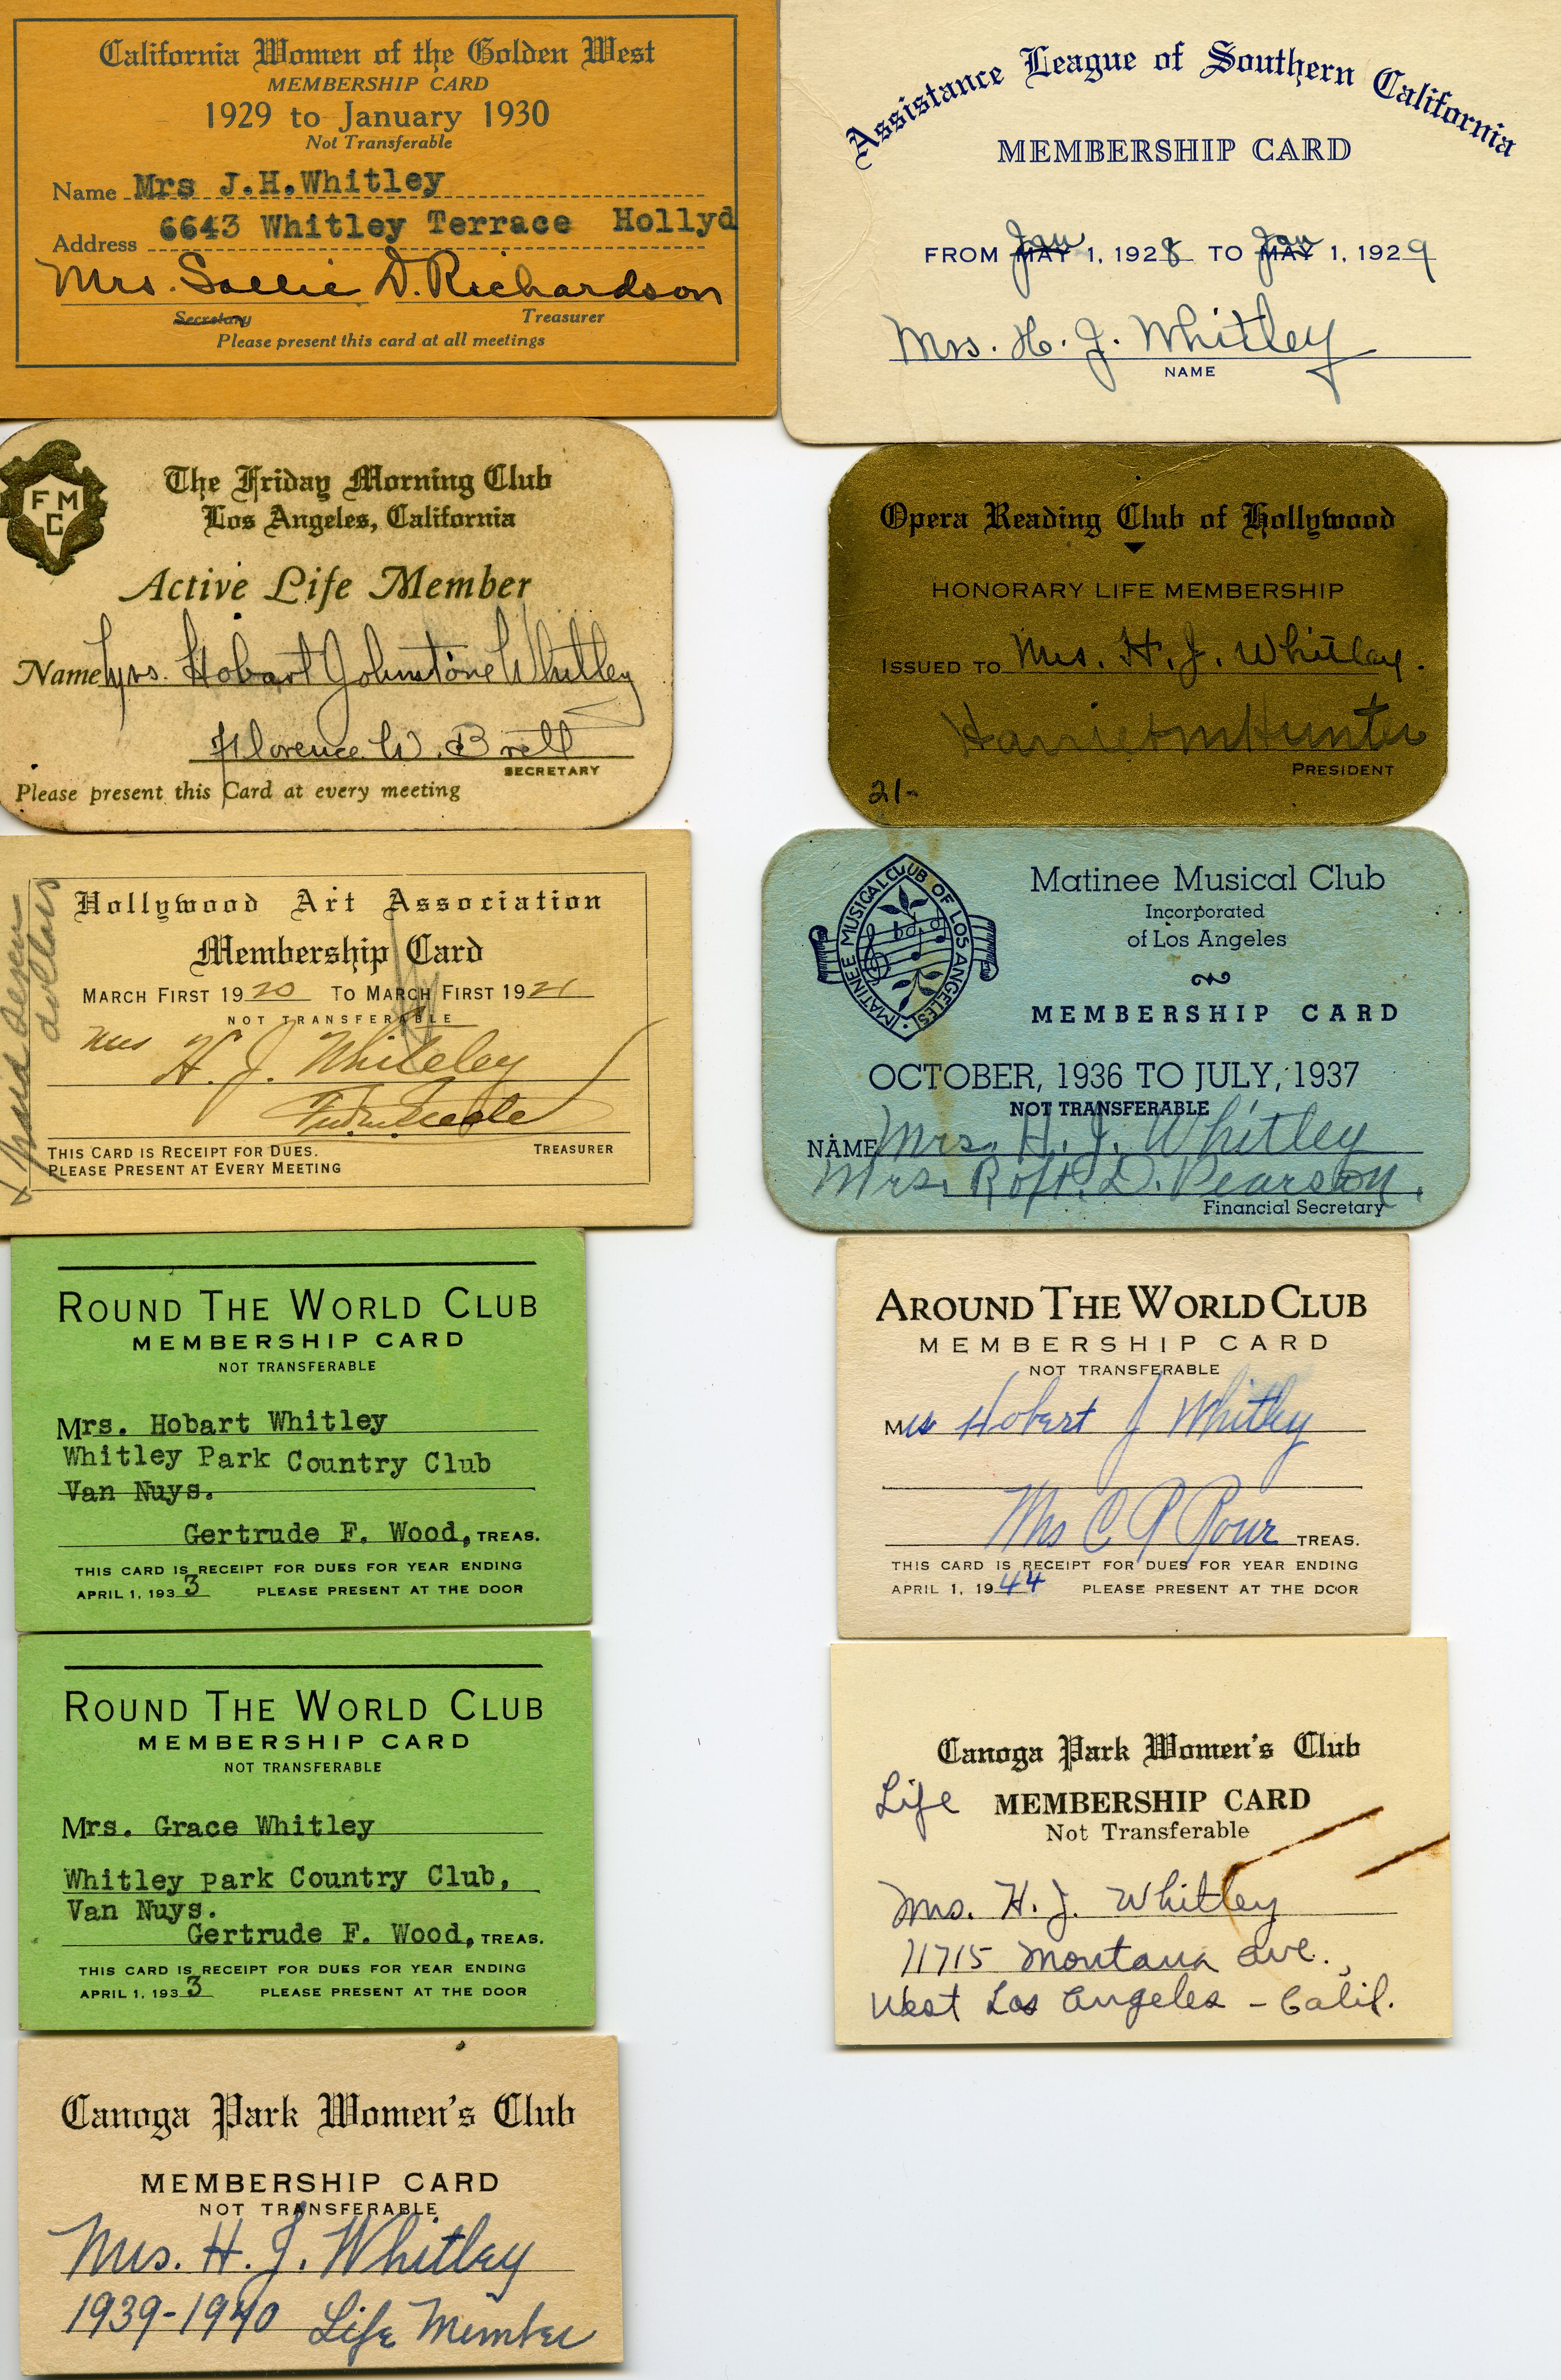 California Women of the Golden West
MEMBERSHIP CARD
1929 to January 1930
Not Transferable
Name Mrs J.H.Whitley
Address 6643 Whitley Terrace Hollyd
Mrs. Sallie D. Richardson
Secretary Treasurer
Please present this card at all meetings
Assistance League of Southern California
MEMBERSHIP CARD
FROM MAY Jan 1, 1928 TO MAY Jan 1, 1929
Mrs. H. J. Whitley
NAME
FMC
The Friday Morning Club
Los Angeles, California
Active Life Member
Name Mrs. Hobart Johnstone Whitley
Florence W. Brell
SECRETARY
Please present this Card at every meeting
Opera Reading Club of Hollywood
HONORARY LIFE MEMBERSHIP
ISSUED TO Mrs. H. J. Whitley.
Harriet M Hunter
PRESIDENT
21-
Hollywood Art Association
Membership Card
MARCH FIRST 1920 TO MARCH FIRST 1921
NOT TRANSFERABLE
Mrs H. J. Whiteley
THIS CARD IS RECEIPT FOR DUES. TREASURER
PLEASE PRESENT AT EVERY MEETING
dollars
MATINEE MUSICAL CLUB OF LOS ANGELES
Matinee Musical Club
Incorporated
of Los Angeles
MEMBERSHIP CARD
OCTOBER, 1936 TO JULY, 1937
NOT TRANSFERABLE
NAME Mrs. H. J. Whitley
Mrs. Robt. D. Pearson.
Financial Secretary
ROUND THE WORLD CLUB
MEMBERSHIP CARD
NOT TRANSFERABLE
Mrs. Hobart Whitley
Whitley Park Country Club
Van Nuys.
Gertrude F. Wood, TREAS.
THIS CARD IS RECEIPT FOR DUES FOR YEAR ENDING
APRIL 1, 1933 PLEASE PRESENT AT THE DOOR
AROUND THE WORLD CLUB
MEMBERSHIP CARD
NOT TRANSFERABLE
Mrs Hobert J Whitley
Mrs C P Rour TREAS.
THIS CARD IS RECEIPT FOR DUES FOR YEAR ENDING
APRIL 1, 1944 PLEASE PRESENT AT THE DOOR
ROUND THE WORLD CLUB
MEMBERSHIP CARD
NOT TRANSFERABLE
Mrs. Grace Whitley
Whitley park Country Club,
Van Nuys.
Gertrude F. Wood, TREAS.
THIS CARD IS RECEIPT FOR DUES FOR YEAR ENDING
APRIL 1, 1933 PLEASE PRESENT AT THE DOOR
Canoga Park Women's Club
Life MEMBERSHIP CARD
Not Transferable
Mrs. H. J. Whitley
11715 Montana ave.,
West Los Angeles - Calif.
Canoga Park Women's Club
MEMBERSHIP CARD
NOT TRANSFERABLE
Mrs. H. J. Whitley
1939-1940 Life Member